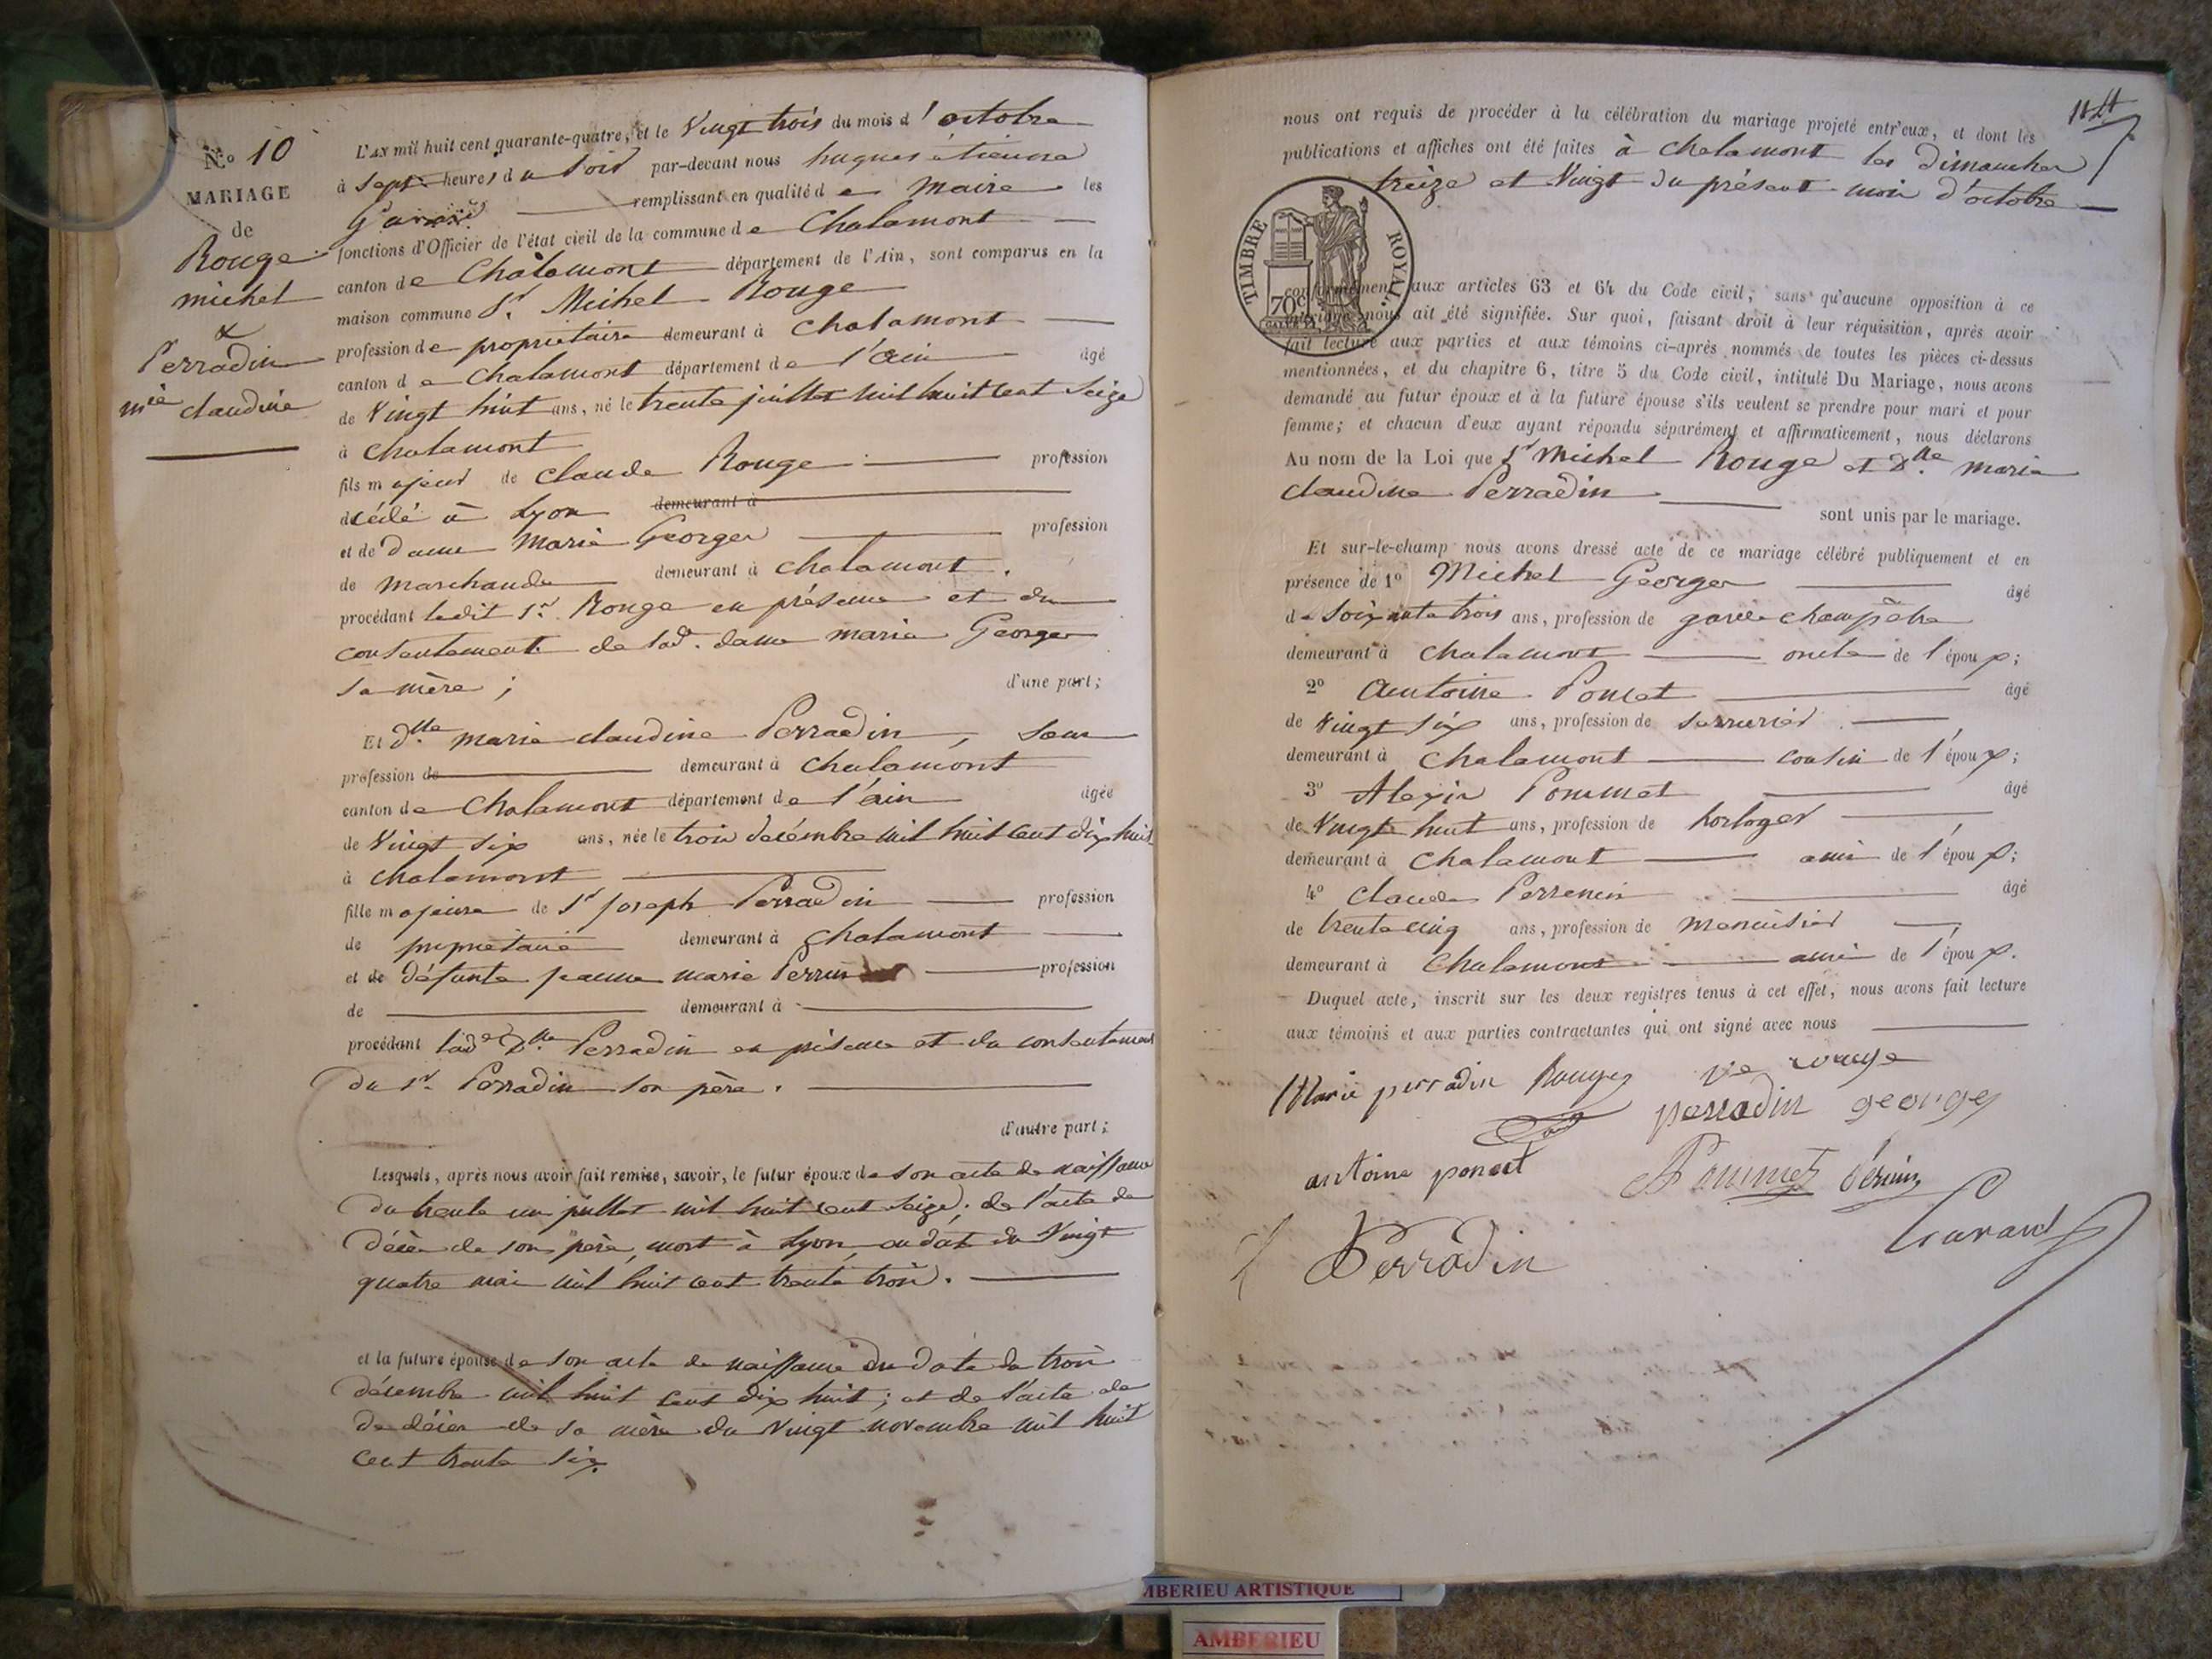 N.o 10
MARIAGE
de
Rouge
michel
&
Perradin
mie claudine
L'AN mil huit cent quarante-quatre, et le Vingt trois du mois d'octobre
à sept heures du soir par-devant nous hugues étienne
Garand remplissant en qualité de maire les
fonctions d'Officier de l'état civil de la commune de Chalamont
canton de Chalamont département de l'Ain, sont comparus en la
maison commune Sr. Michel Rouge
profession de propriétaire demeurant à Chalamont
canton de Chalamont département de l'ain âgé
de Vingt huit ans, né le trente juillet mil huit cent seize
à Chalamont
fils majeur de Claude Rouge profession
décédé à Lyon demeurant à
et de dame Marie Georges profession
de marchande demeurant à Chalamont.
procédant ledit Sr. Rouge en présence et du
consentement de lad. dame marie Georges
sa mère; d'une part;
Et dlle marie claudine Perradin, sans
profession de demeurant à Chalamont
canton de Chalamont département de l'ain âgée
de Vingt six ans, née le trois décembre mil huit cent dix huit
à Chalamont
fille majeure de Sr joseph Perradin profession
de propriétaire demeurant à Chalamont
et de défunte jeanne marie Perrin profession
de demeurant à
procédant lade Dlle Perradin en présence et du consentement
du sr. Perradin son père.
d'autre part;
Lesquels, après nous avoir fait remise, savoir, le futur époux de son acte de naissance
du trente un juillet mil huit cent seize; de l'acte de
décès de son père, mort à Lyon, en dat du Vingt
quatre mai mil huit cent trente trois.
et la future épouse de son acte de naissance du date du trois
décembre mil huit cent dix huit; et de l'acte de
de décès de sa mère du vingt novembre mil huit
cent trente six.
nous ont requis de procéder à la célébration du mariage projeté entr'eux, et dont les
publications et affiches ont été faites à Chalamont les dimanches
treize et Vingt du présent mois d'octobre
TIMBRE ROYAL.
70c
conformément aux articles 63 et 64 du Code civil, sans qu'aucune opposition à ce
mariage nous ait été signifiée. Sur quoi, faisant droit à leur réquisition, après avoir
fait lecture aux parties et aux témoins ci-après nommés de toutes les pièces ci-dessus
mentionnées, et du chapitre 6, titre 5 du Code civil, intitulé Du Mariage, nous avons
demandé au futur époux et à la future épouse s'ils veulent se prendre pour mari et pour
femme; et chacun d'eux ayant répondu séparément et affirmativement, nous déclarons
Au nom de la Loi que Sr Michel Rouge et Dlle marie
claudine Perradin
sont unis par le mariage.
Et sur-le-champ nous avons dressé acte de ce mariage célébré publiquement et en
présence de 1o Michel Georges âgé
de soixante trois ans, profession de garde champêtre
demeurant à Chalamont oncle de l'époux;
2o Antoine Poncet âgé
de Vingt six ans, profession de serrurier
demeurant à Chalamont cousin de l'époux;
3o Alexis Pommet âgé
de Vingt huit ans, profession de horloger
demeurant à Chalamont ami de l'époux;
4o Claude Perrenin âgé
de trente cinq ans, profession de Menuisier
demeurant à Chalamont ami de l'époux.
Duquel acte, inscrit sur les deux registres tenus à cet effet, nous avons fait lecture
aux témoins et aux parties contractantes qui ont signé avec nous
Marie perradin Rouge ve rouge
perradin george
antoine poncet Pommet
Perradin Garand
MBERIEU ARTISTIQUE
AMBERIEU